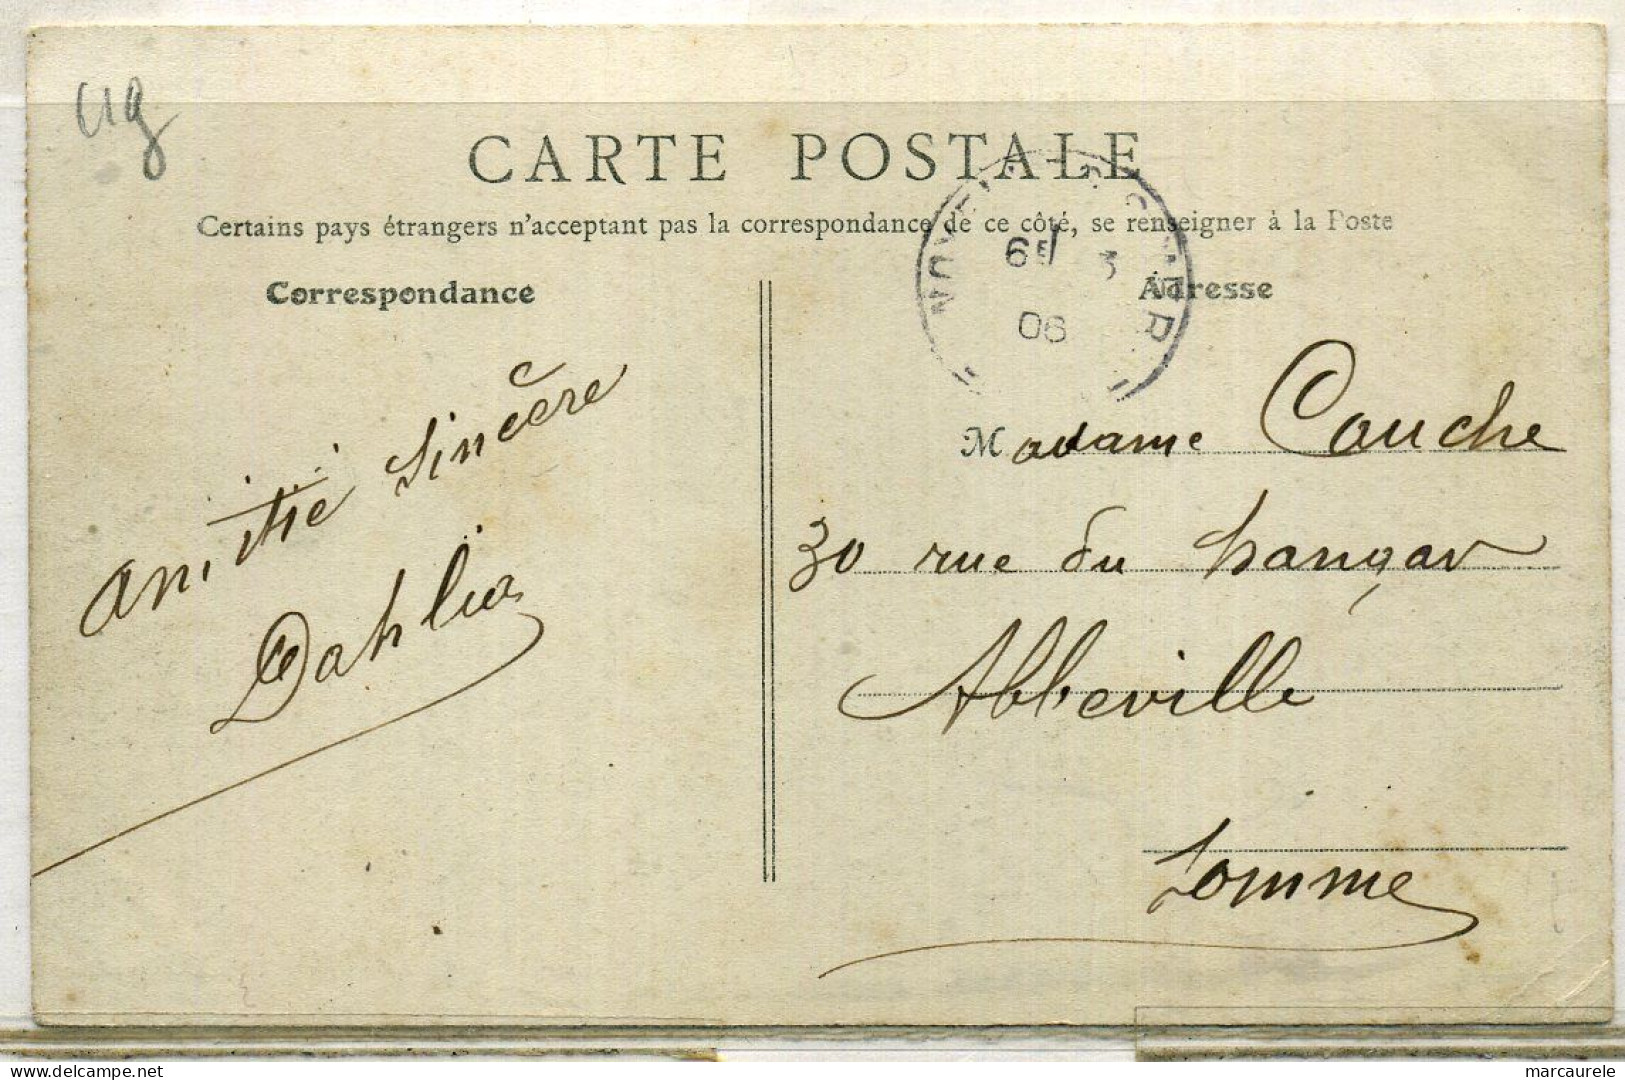 CARTE POSTALE
Certains pays étrangers n'acceptant pas la correspondance de ce côté, se renseigner à la Poste
Correspondance
Adresse
6E 3
06
amitié sincère
Dahlia
Madame Couche
30 rue du hangar
Abbeville
Somme
marcaurele